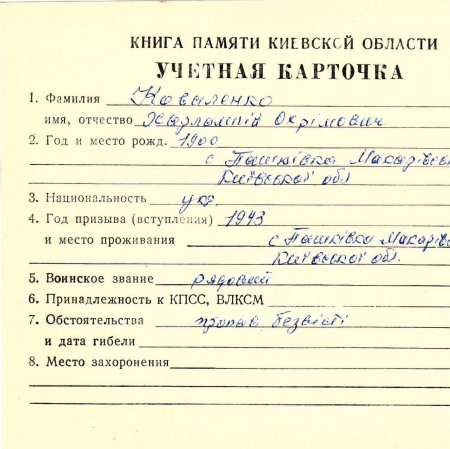 КНИГА ПАМЯТИ КИЕВСКОЙ ОБЛАСТИ
УЧЕТНАЯ КАРТОЧКА
1. Фамилия Коваленко
имя, отчество Харлампій Охрімович
2. Год и место рожд. 1900
с Пашківка Макарівсь
Київської обл
3. Национальность укр.
4. Год призыва (вступления) 1943
и место проживания с Пашківка Макарівс
Київської обл.
5. Воинское звание рядовий
6. Принадлежность к КПСС, ВЛКСМ
7. Обстоятельства пропав безвісті
и дата гибели
8. Место захоронения